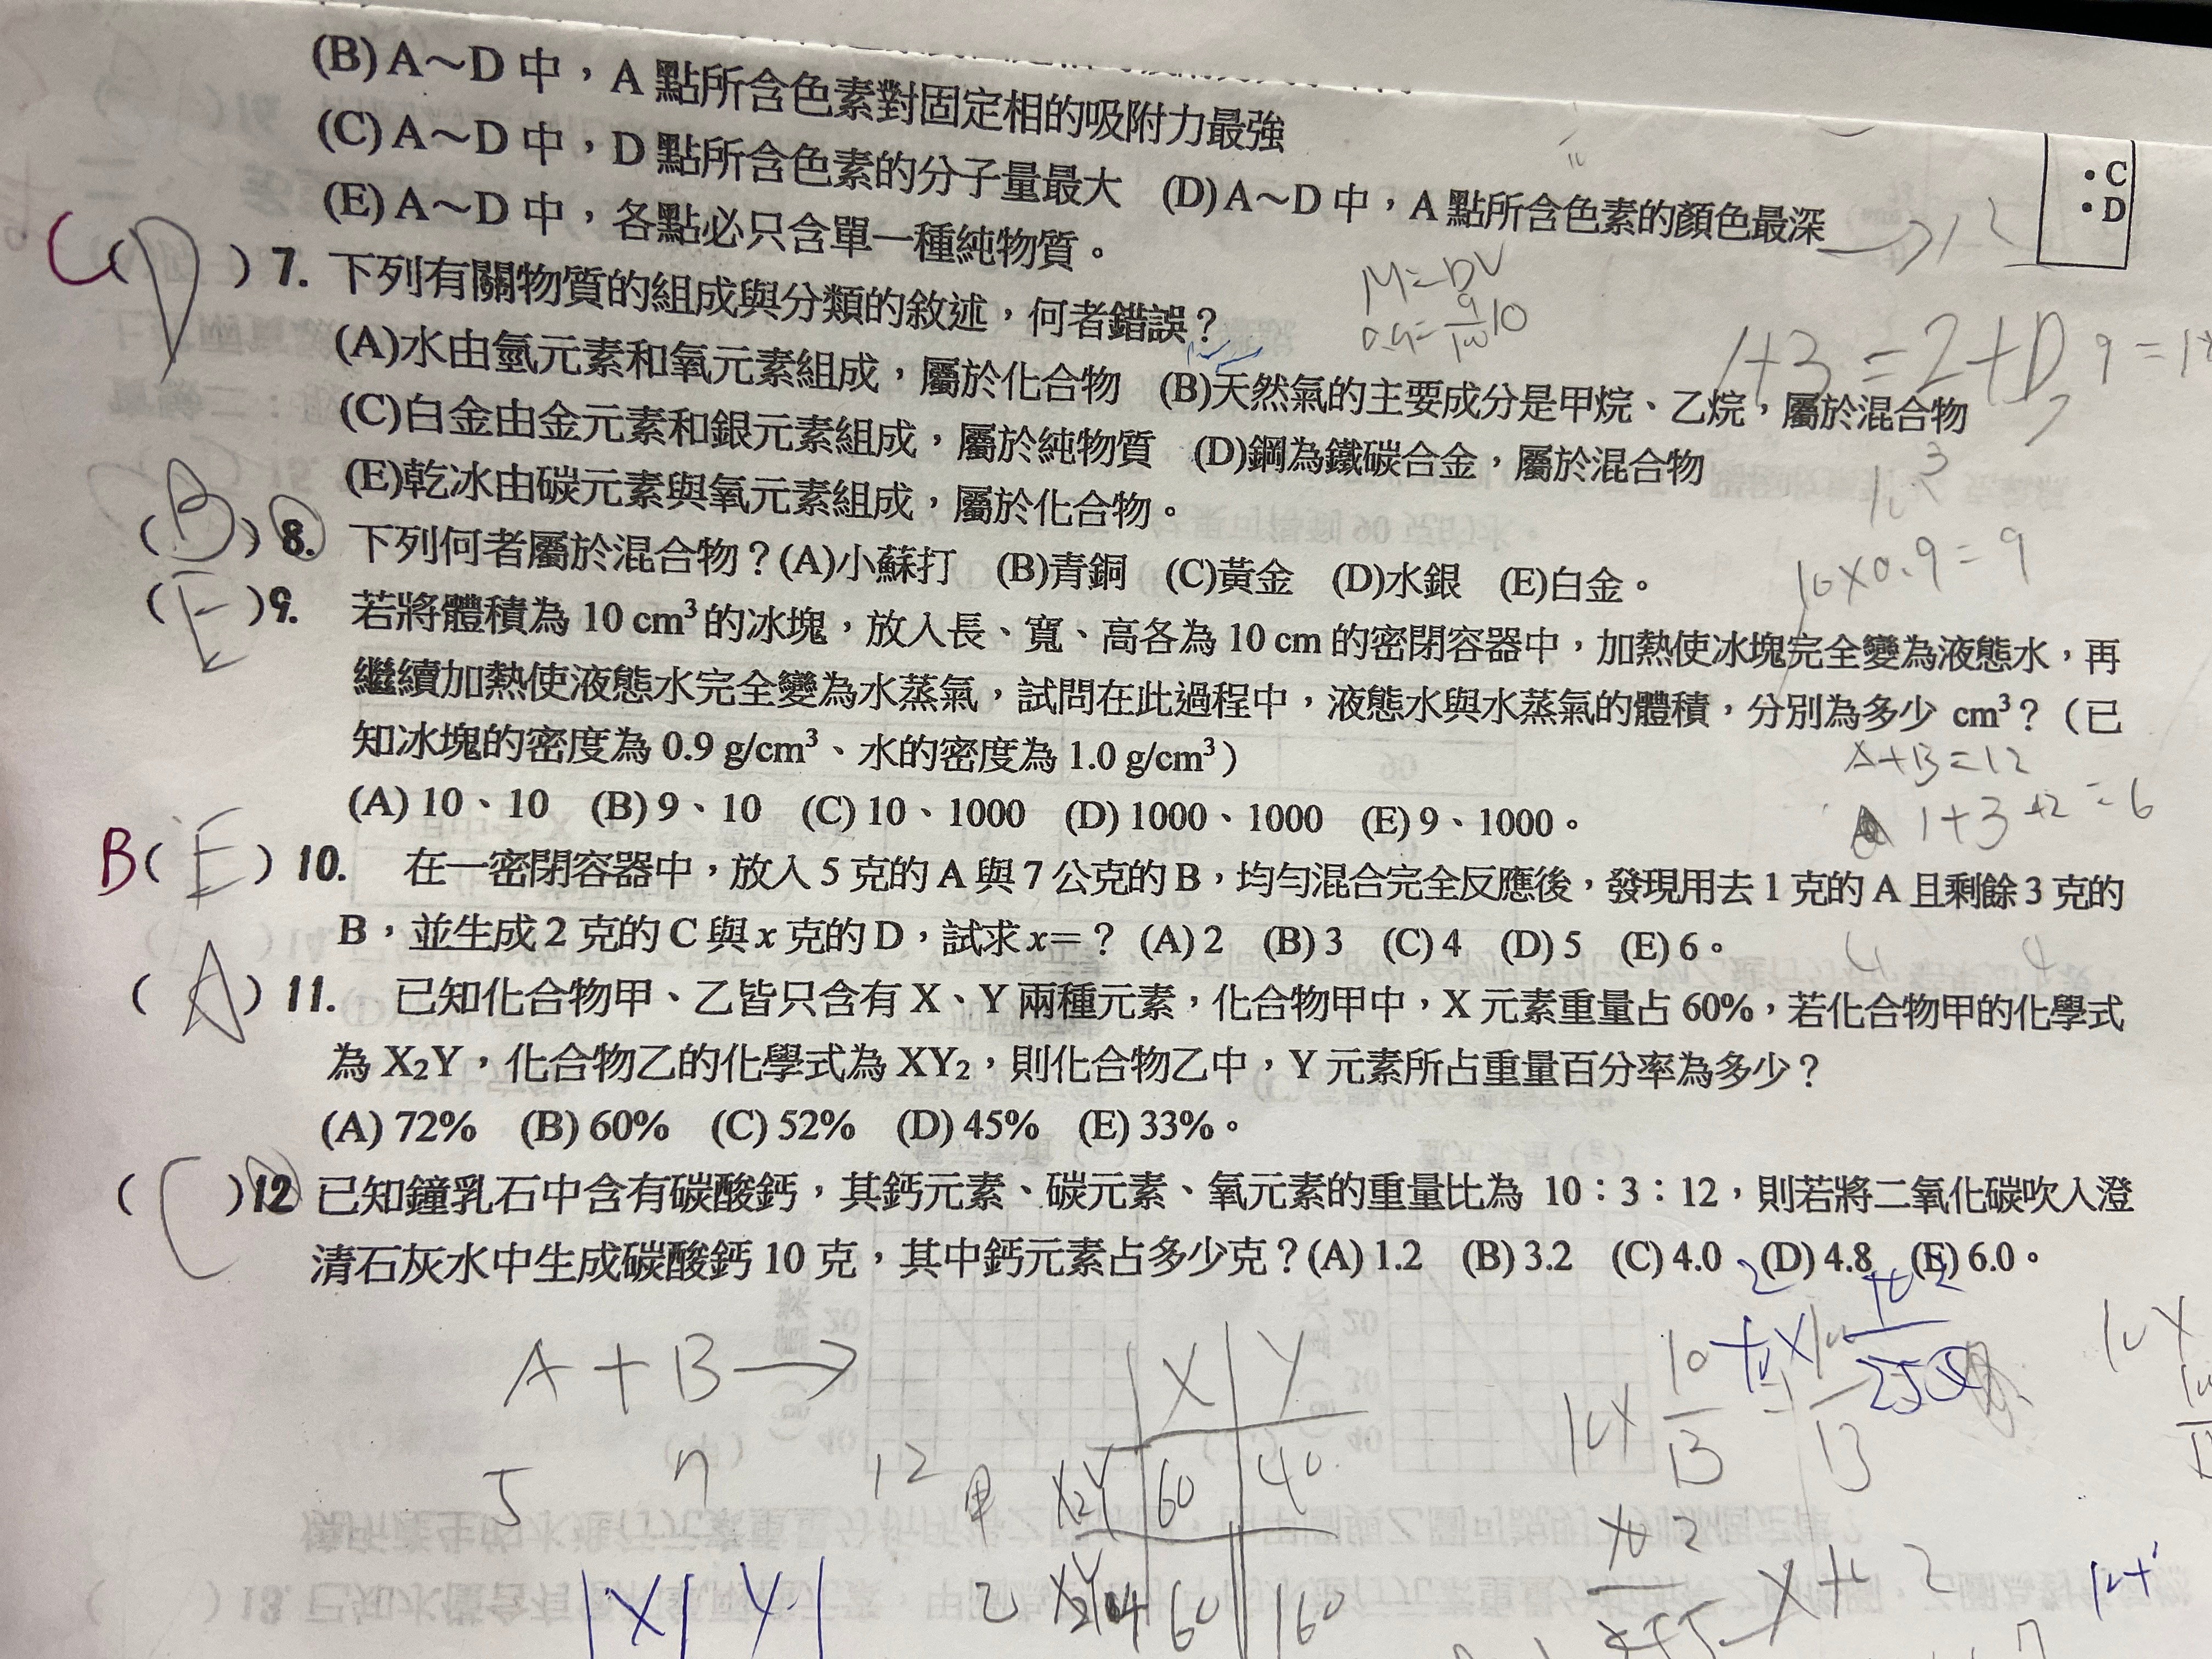 (B) A～D 中，A 點所含色素對固定相的吸附力最強
(C) A～D 中，D 點所含色素的分子量最大 (D) A～D 中，A 點所含色素的顏色最深
(E) A～D 中，各點必只含單一種純物質。
•C
•D
C( D ) 7. 下列有關物質的組成與分類的敘述，何者錯誤？
M=DV
(A)水由氫元素和氧元素組成，屬於化合物 (B)天然氣的主要成分是甲烷、乙烷，屬於混合物
1+3=2+D
(C)白金由金元素和銀元素組成，屬於純物質 (D)鋼為鐵碳合金，屬於混合物
(E)乾冰由碳元素與氧元素組成，屬於化合物。
( B ) 8. 下列何者屬於混合物？(A)小蘇打 (B)青銅 (C)黃金 (D)水銀 (E)白金。
10×0.9=9
( E ) 9. 若將體積為 10 cm³ 的冰塊，放入長、寬、高各為 10 cm 的密閉容器中，加熱使冰塊完全變為液態水，再
繼續加熱使液態水完全變為水蒸氣，試問在此過程中，液態水與水蒸氣的體積，分別為多少 cm³？（已
知冰塊的密度為 0.9 g/cm³、水的密度為 1.0 g/cm³）
A+B=12
(A) 10、10 (B) 9、10 (C) 10、1000 (D) 1000、1000 (E) 9、1000。
1+3+2=6
B( E ) 10. 在一密閉容器中，放入 5 克的 A 與 7 公克的 B，均勻混合完全反應後，發現用去 1 克的 A 且剩餘 3 克的
B，並生成 2 克的 C 與 x 克的 D，試求 x=？ (A) 2 (B) 3 (C) 4 (D) 5 (E) 6。
( A ) 11. 已知化合物甲、乙皆只含有 X、Y 兩種元素，化合物甲中，X 元素重量占 60%，若化合物甲的化學式
為 X₂Y，化合物乙的化學式為 XY₂，則化合物乙中，Y 元素所占重量百分率為多少？
(A) 72% (B) 60% (C) 52% (D) 45% (E) 33%。
( C ) 12 已知鐘乳石中含有碳酸鈣，其鈣元素、碳元素、氧元素的重量比為 10：3：12，則若將二氧化碳吹入澄
清石灰水中生成碳酸鈣 10 克，其中鈣元素占多少克？(A) 1.2 (B) 3.2 (C) 4.0 (D) 4.8 (E) 6.0。
A + B →
5 7 12
X Y
甲 X2Y 60 40
乙 60 160
X Y